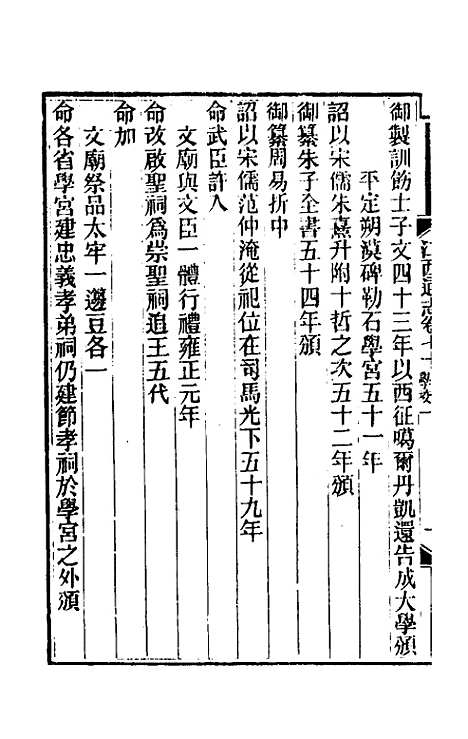 江西通志卷七十 學校一
御製訓飭士子文四十三年以西征噶爾丹凱還告成大學頒
平定朔漠碑勒石學宮五十一年
詔以宋儒朱熹升附十哲之次五十二年頒
御纂朱子全書五十四年頒
御纂周易折中
詔以宋儒范仲淹從祀位在司馬光下五十九年
命武臣許入
文廟與文臣一體行禮雍正元年
命改啟聖祠爲崇聖祠追王五代
命加
文廟祭品太牢一籩豆各一
命各省學宮建忠義孝弟祠仍建節孝祠於學宮之外頒